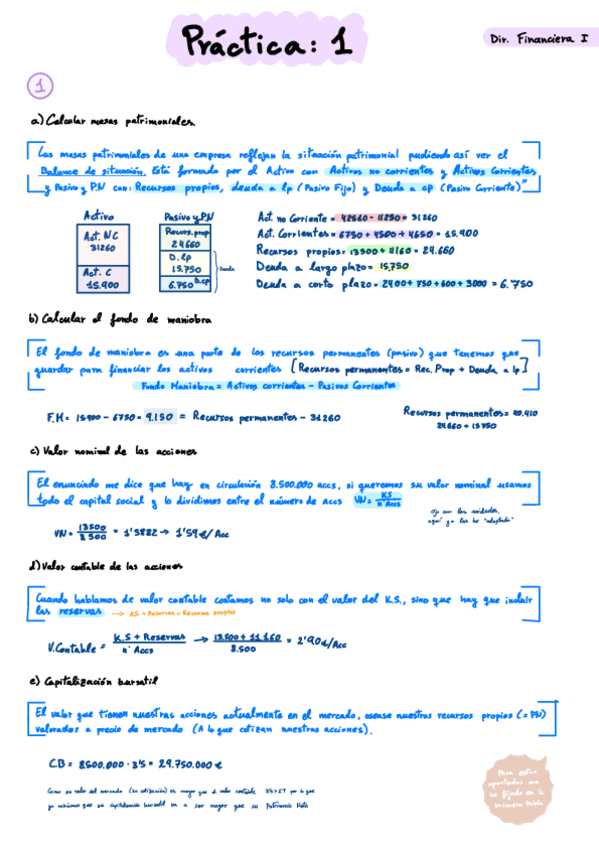 Práctica: 1
Dir. Financiera I
1
a) Calcular masas patrimoniales.
Las masas patrimoniales de una empresa reflejan la situación patrimonial pudiendo así ver el
Balance de situación. Está formado por el Activo con Activos no corrientes y Activos Corrientes
y Pasivo y PN con: Recursos propios, deuda a lp (Pasivo Fijo) y Deuda a cp (Pasivo Corriente)"
Activo
Pasivo y PN
Act. NC
31260
Act. C
15.900
Recurs. prop
24660
D. lp
15.750
6.750 D.cp
Deuda
Act no Corriente = 42510 - 11250 = 31260
Act. Corrientes = 6750 + 4500 + 4650 = 15.900
Recursos propios = 13500 + 11160 = 24.660
Deuda a largo plazo = 15,750
Deuda a corto plazo = 2400 + 750 + 600 + 3000 = 6.750
b) Calcular el fondo de maniobra
El fondo de maniobra es una parte de los recursos permanentes (pasivo) que tenemos que
guardar para financiar los activos corrientes [Recursos permanentes = Rec. Prop + Deuda a lp]
Fondo Maniobra = Activos corrientes - Pasivos Corrientes
F.M = 15900 - 6750 = 9.150 = Recursos permanentes - 31260
Recursos permanentes = 40.410
24660 + 15750
c) Valor nominal de las acciones
El enunciado me dice que hay en circulación 8.500.000 accs, si queremos su valor nominal usamos
todo el capital social y lo dividimos entre el número de Accs VN = KS / nº Accs
Ojo con las unidades,
aquí ya las he "adaptado"
VN = 13500 / 8500 = 1'5882 → 1'59€/Acc
d) Valor contable de las acciones
Cuando hablamos de valor contable contamos no solo con el valor del K.S., sino que hay que incluir
las reservas → KS + Reservas = Recursos propios
V.Contable = K.S + Reservas / nº Accs → 13500 + 11160 / 8.500 = 2'90€/Acc
e) Capitalización bursatil
El valor que tienen nuestras acciones actualmente en el mercado, osease nuestros recursos propios (=PN)
valorados a precio de mercado (A lo que cotizan nuestras acciones).
CB = 8500.000 · 3'5 = 29.750.000 €
Como su valor del mercado (su cotización) es mayor que el valor contable 3'5 > 2'9 por lo que
ya sabíamos que su capitalización bursatil va a ser mayor que su Patrimonio Neto
Para estos
apartados me
he fijado en la
primera tabla